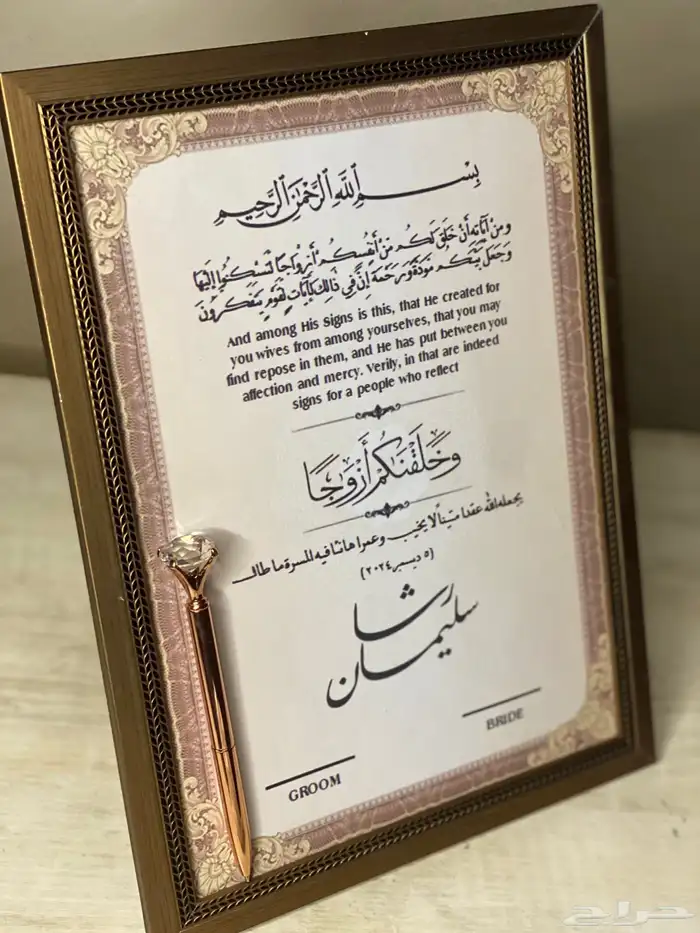 بِسْمِ ٱللَّهِ ٱلرَّحْمَٰنِ ٱلرَّحِيمِ
ومِنْ آيَاتِهِ أَنْ خَلَقَ لَكُم مِّنْ أَنفُسِكُمْ أَزْوَاجًا لِّتَسْكُنُوا إِلَيْهَا
وَجَعَلَ بَيْنَكُم مَّوَدَّةً وَرَحْمَةً إِنَّ فِي ذَٰلِكَ لَآيَاتٍ لِّقَوْمٍ يَتَفَكَّرُونَ
And among His Signs is this, that He created for
you wives from among yourselves, that you may
find repose in them, and He has put between you
affection and mercy. Verily, in that are indeed
signs for a people who reflect
وَخَلَقْنَاكُمْ أَزْوَاجًا
يجعله الله عقدا متينا لا يخيب وعمرا هانئا فيه للمسرة ما طاب
(٥ ديسمبر ٢٠٢٤)
رشا
سليمان
BRIDE
GROOM
حراج